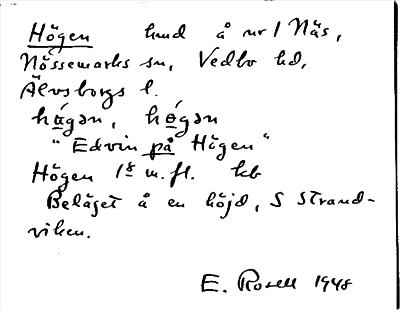 Högen hmd å nr 1 Näs,
Nössemarks sn, Vedbo hd,
Älvsborgs l.
högən, høgən
"Edvin på Högen"
Högen 1 8 m.fl. kb
Beläget å en höjd, S Strand-
viken.
E. Rosell 1948